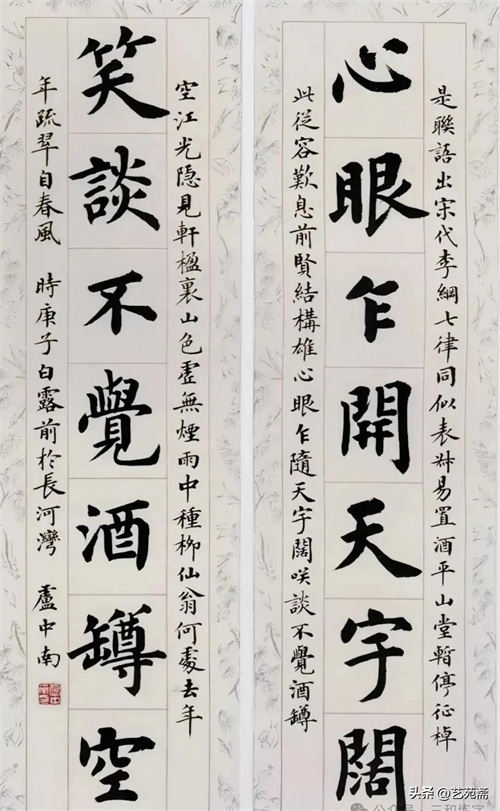 是聯語出宋代李綱七律同似表叔易置酒平山堂暫停征棹
心眼乍開天宇闊
此從容歎息前賢結構雄心眼乍隨天宇闊咲談不覺酒罇
空江光隱見軒楹裏山色虛無煙雨中種柳仙翁何處去年
笑談不覺酒罇空
年疏翠自春風 時庚子白露前於長河灣 盧中南
头条 @艺苑斋